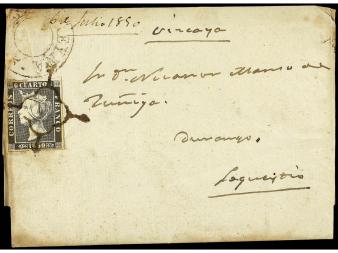 6 Julio 1850
Vizcaya
Sr Dn Nicanor Manso de
Zuñiga.
Durango.
Lequeitio
CORREOS 6 CUARTO FRANCO 1850